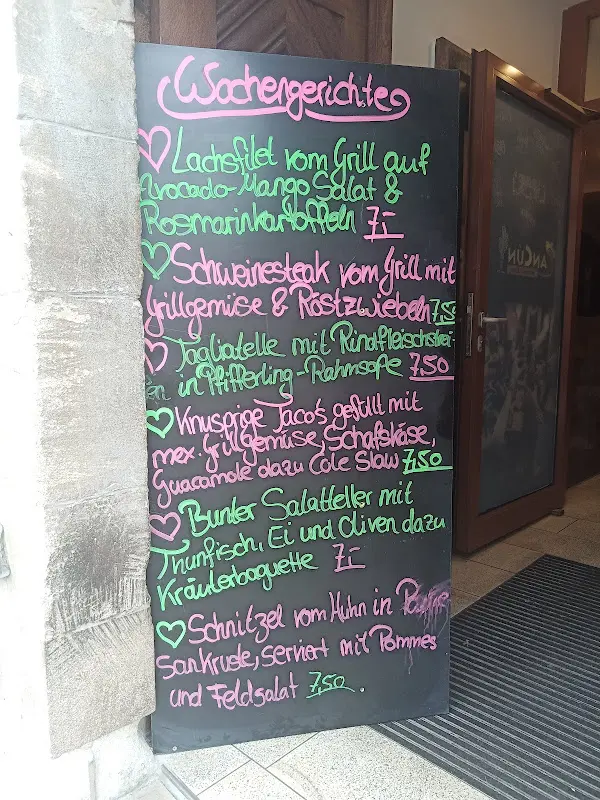 Wochengerichte
Lachsfilet vom Grill auf
Avocado-Mango Salat &
Rosmarinkartoffeln 7,-
Schweinesteak vom Grill mit
Grillgemüse & Röstzwiebeln 7,50
Tagliatelle mit Rindfleischstrei-
en in Pfifferling-Rahmsoße 7,50
Knusprige Taco's gefüllt mit
mex. Grillgemüse, Schafskäse,
Guacamole dazu Cole Slaw 7,50
Bunter Salatteller mit
Thunfisch, Ei und Oliven dazu
Kräuterbaguette 7,-
Schnitzel vom Huhn in
sankruste, serviert mit Pommes
und Feldsalat 7,50.
CANCUN